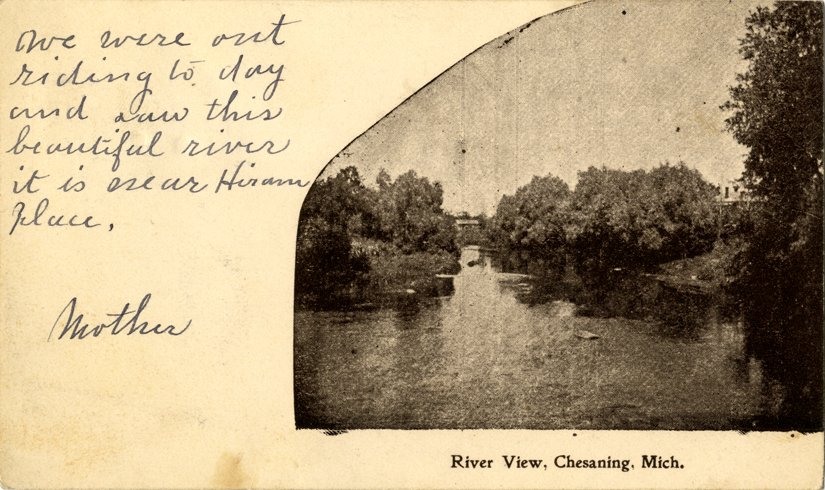 We were out
riding to day
and saw this
beautiful river
it is near Hiram
place.
Mother
River View, Chesaning, Mich.